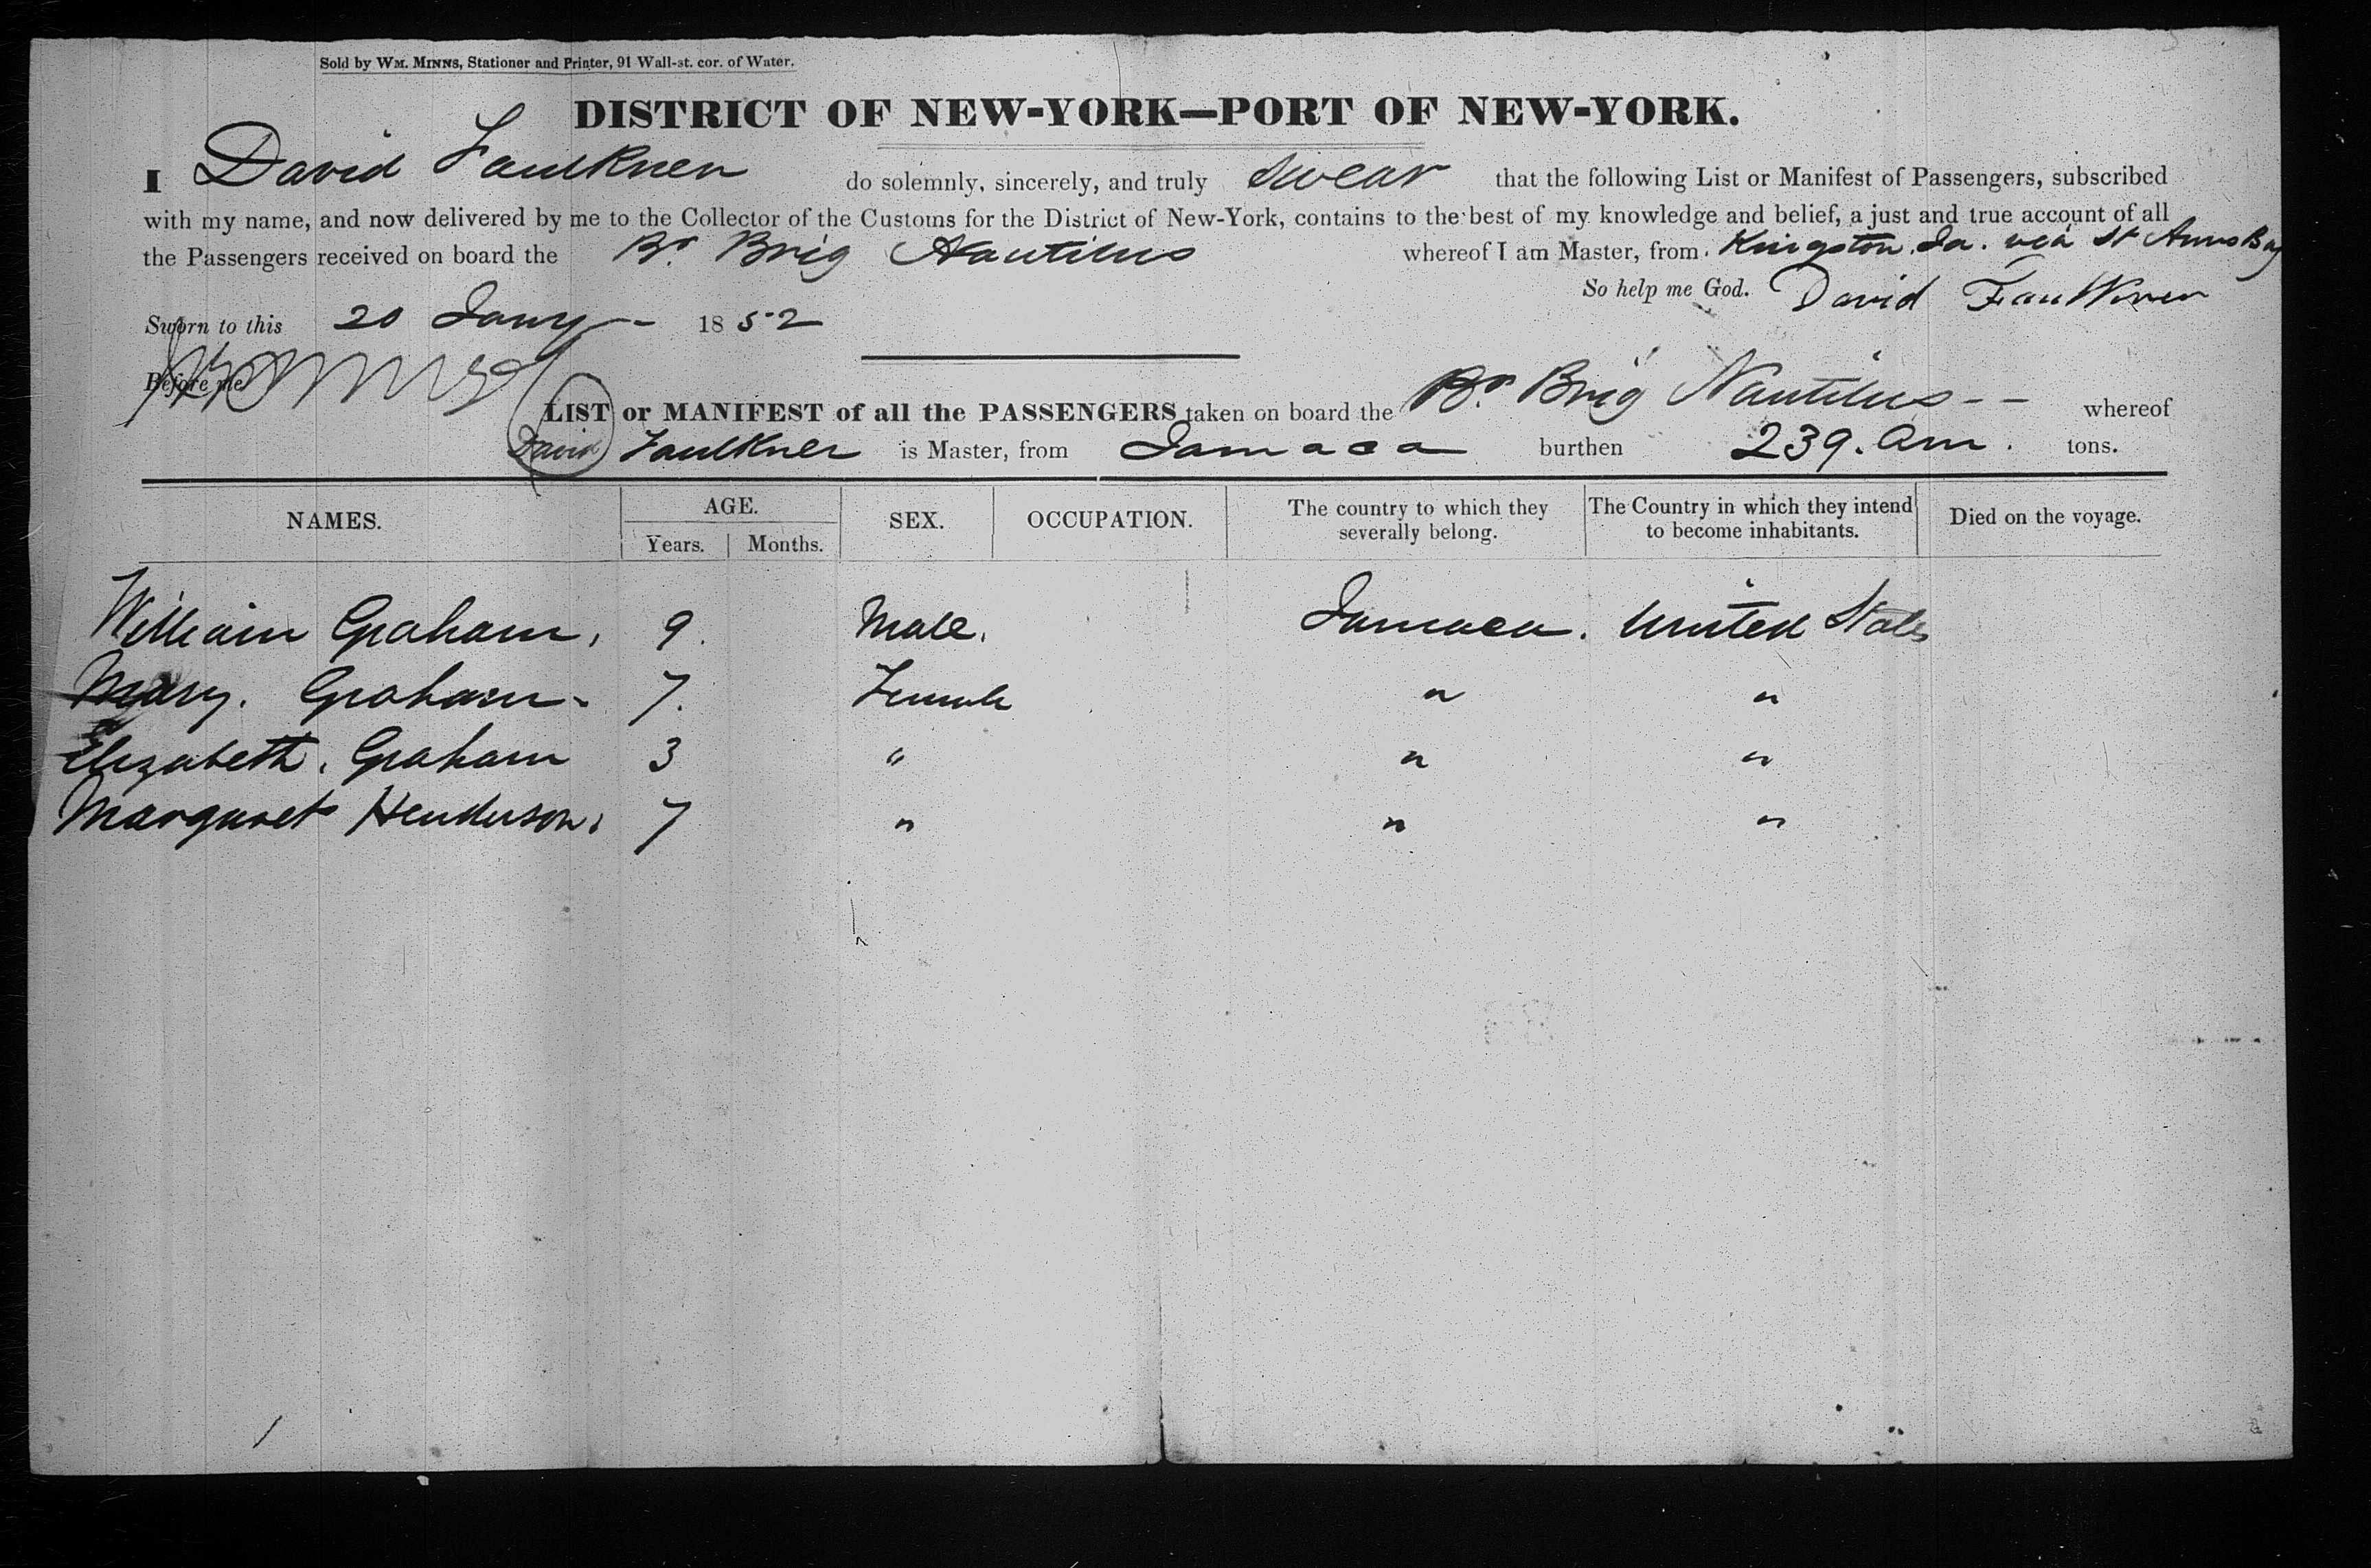 Sold by WM. MINNS, Stationer and Printer, 91 Wall-st. cor. of Water.
DISTRICT OF NEW-YORK—PORT OF NEW-YORK.
I David Faulkner do solemnly, sincerely, and truly swear that the following List or Manifest of Passengers, subscribed
with my name, and now delivered by me to the Collector of the Customs for the District of New-York, contains to the best of my knowledge and belief, a just and true account of all
the Passengers received on board the Br. Brig Nautilus whereof I am Master, from Kingston Ja. via St Anns Bay
So help me God. David Faulkner
Sworn to this 20 Jany 1852
Before me
LIST or MANIFEST of all the PASSENGERS taken on board the Br. Brig Nautilus -- whereof
David Faulkner is Master, from Jamaca burthen 239. Am. tons.
NAMES. AGE. SEX. OCCUPATION. The country to which they severally belong. The Country in which they intend to become inhabitants. Died on the voyage.
Years. Months.
William Graham. 9. Male. Jamaca. United States
Mary. Graham. 7. Female " "
Elizabeth. Graham 3 " " "
Margaret Henderson. 7 " " "